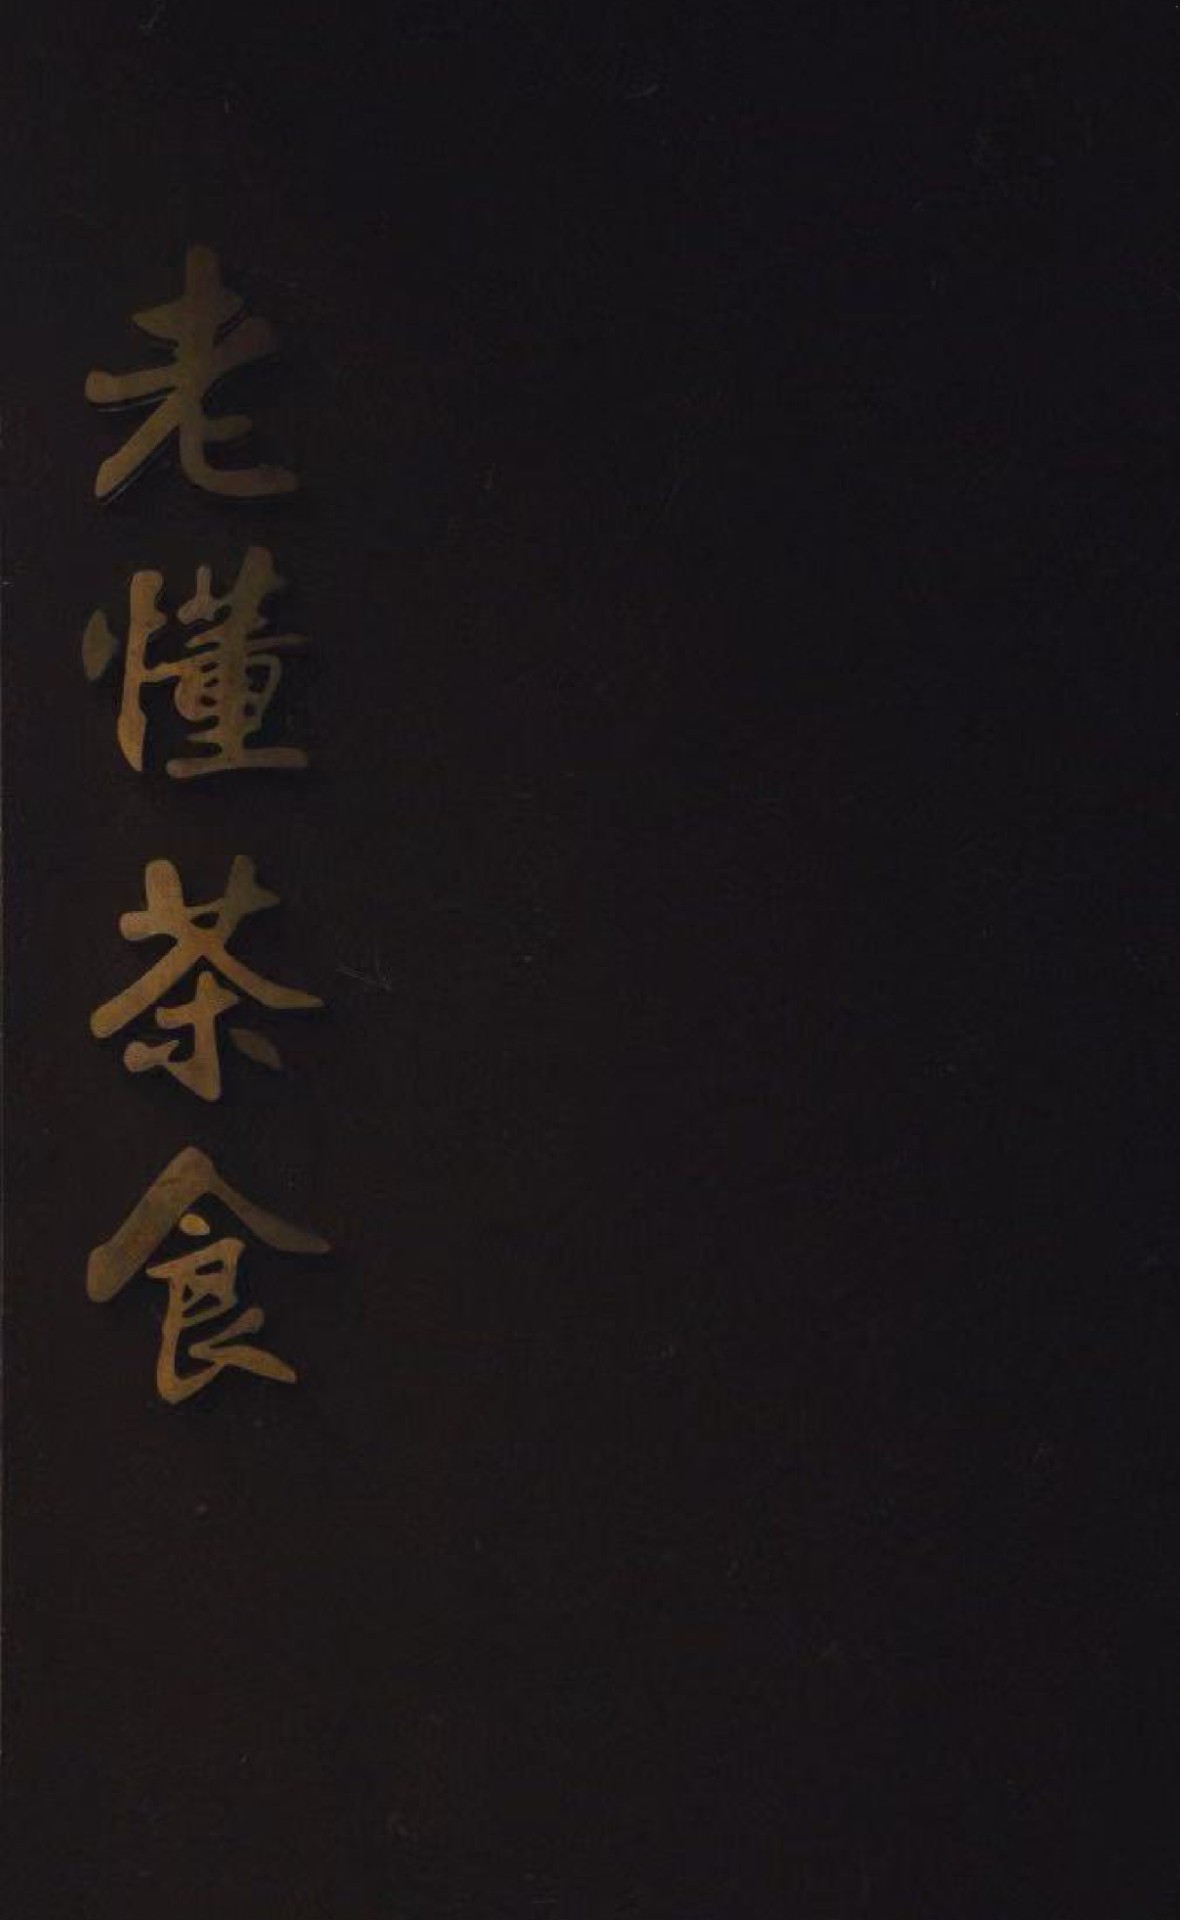 老懂茶食